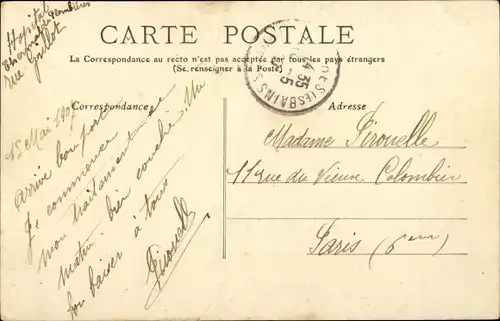 Hopital
Thermal de Plombières
rue Grillot
CARTE POSTALE
La Correspondance au recto n'est pas acceptée par tous les pays étrangers
(Se renseigner à la Poste)
14 35
5-5
LES BAINS
Correspondance
Adresse
15 Mai 1907
Arrivé bon port
Je commence
mon traitement ce
matin. bien couché. Un
bon baiser à tous
Pirouelle
Madame Pirouelle
11 rue du Vieux Colombier
Paris (6eme)